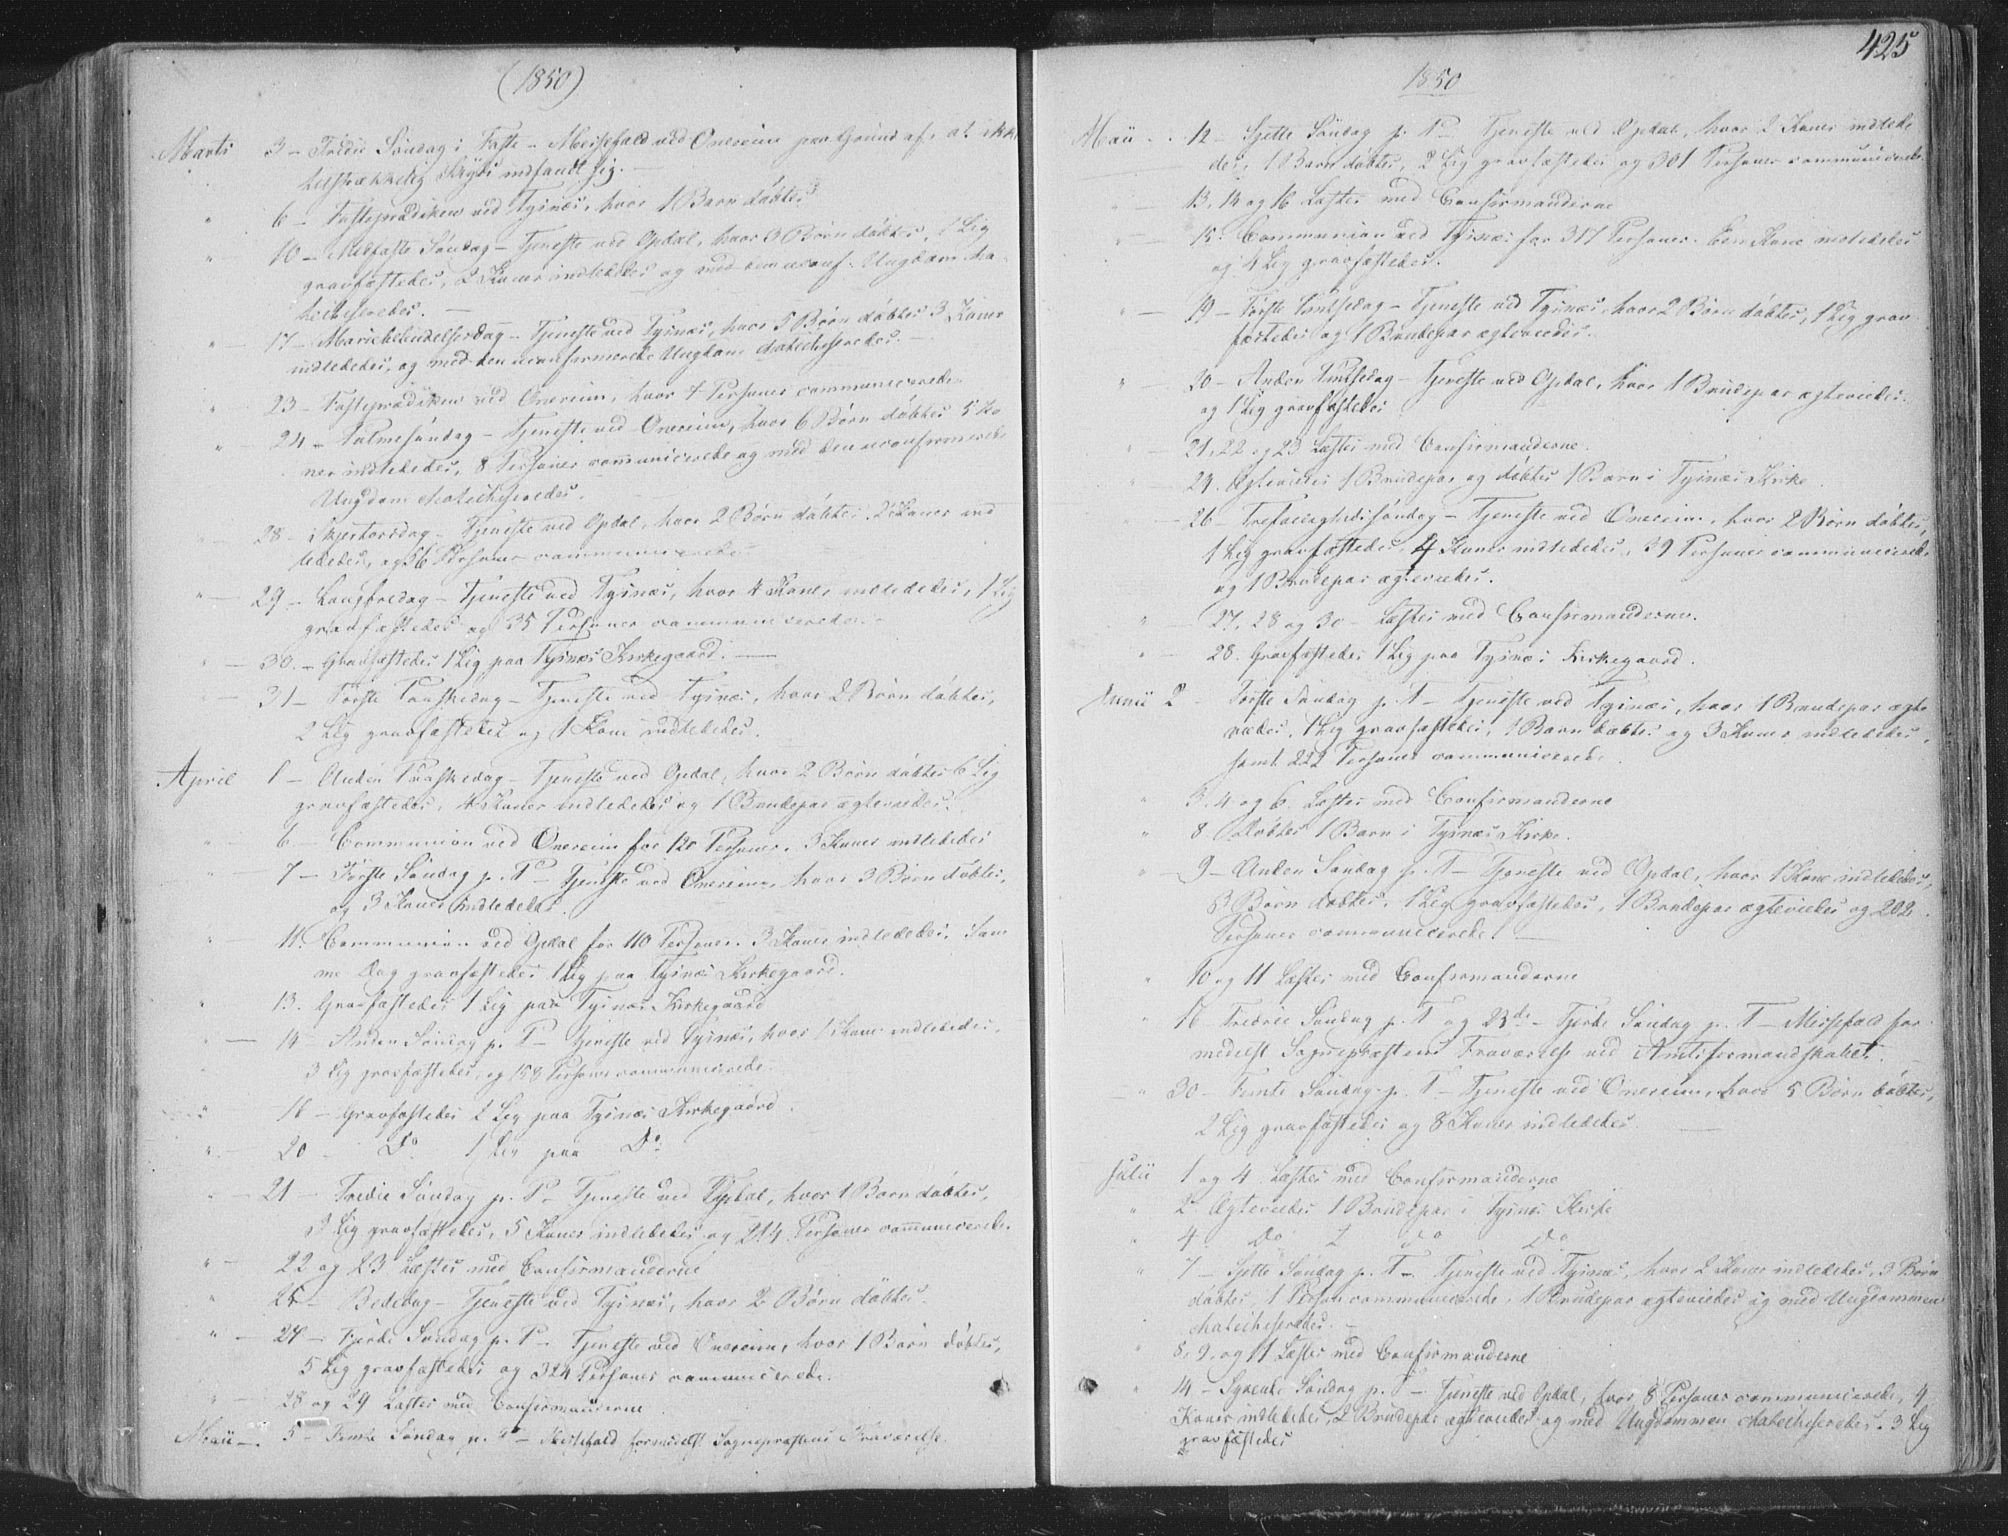 (1850)
Marts 3 – Tredie Søndag i Faste – Messefald ved Onereim paa Grund af, at ikke
tilstrækkelig Skyds indfandt sig. –
" 6 – Fasteprædiken ved Tysnæs, hvor 1 Barn döbtes
" 10 – Midfaste Søndag – Tjeneste ved Opdal, hvor 3 Börn döbtes, 1 Lig
gravfæstedes, 2 Koner indlededes og med den uconf. Ungdom ka-
techiseredes. –
" – 17 – Mariæ Bebudelsesdag – Tjeneste ved Tysnæs, hvor 5 Börn döbtes 3 Koner
indlededes, og med den uconfirmerede Ungdom Katechiseredes. –
" 23 – Fasteprædiken ved Onereim, hvor 4 Personer communicerede.
" 24 – Palmesöndag – Tjeneste ved Onereim, hvor 6 Börn döbtes 5 Ko
ner indlededes, 8 Personer communicerede og med den uconfirmerede
Ungdom Katechiseredes.
" – 28 – Skjertorsdag – Tjeneste ved Opdal, hvor 2 Börn döbtes, 2 Koner ind
lededes, og 56 Personer communicerede
" – 29 – Langfredag – Tjeneste ved Tysnæs, hvor 4 Koner indlededes, 1 Lig
gravfæstedes og 35 Personer communicerede. –
" – 30. – Gravfæstedes 1 Lig paa Tysnæs Kirkegaard. –
– 31 – Første Paaskedag – Tjeneste ved Tysnæs, hvor 2 Börn döbtes,
2 Lig gravfæstedes og 1 Kone indlededes.
April 1 – Anden Paaskedag – Tjeneste ved Opdal, hvor 2 Börn döbtes 6 Lig
gravfæstedes, 4 Koner indlededes og 1 Brudepar ægteviedes.
" – 6 – Communion ved Onereim for 120 Personer. 3 Koner indlededes
" – 7 – Første Söndag p. P – Tjeneste ved Onereim, hvor 3 Börn döbtes,
og 3 Koner indlededes.
" – 11. Communion ved Opdal for 110 Personer. 3 Koner indlededes. Sam
me Dag gravfæstedes 1 Lig paa Tysnæs Kirkegaard.
" 13. Gravfæstedes 1 Lig paa Tysnæs Kirkegaard
" – 14 – Anden Söndag p. P – Tjeneste ved Tysnæs, hvor 1 Kone indlededes,
3 Lig gravfæstedes, og 158 Personer communicerede.
" 16 – Gravfæstedes 2 Lig paa Tysnæs Kirkegaard.
" – 20 – Do. 1 Lig paa Do.
" – 21 – Tredie Söndag p. P – Tjeneste ved Opdal, hvor 1 Barn döbtes,
3 Lig gravfæstedes, 5 Koner indlededes og 214 Personer communicerede.
" – 22 og 23 Læstes med Confirmanderne
" 26 – Bededag – Tjeneste ved Tysnæs, hvor 2 Börn döbtes.
" – 28 – Fjerde Søndag p. P – Tjeneste ved Onereim, hvor 1 Barn döbtes,
5 Lig gravfæstedes og 324 Personer communicerede.
" – 28 og 29 Læstes med Confirmanderne
Maii – 5 – Femte Søndag p. P – Messefald formedelst Sognepræstens Fraværelse.
425
1850
Maii – 12 – Sjette Söndag p. P – Tjeneste ved Opdal, hvor 2 Koner indlede
des, 1 Barn döbtes, 2 Lig gravfæstedes og 301 Personer communicerede.
" – 13, 14 og 16 Læstes med Confirmanderne
" – 15. Communion ved Tysnæs for 317 Personer. Een Kone indlededes
og 4 Lig gravfæstedes.
" – 19 – Første Pintsedag – Tjeneste ved Tysnæs, hvor 2 Börn döbtes, 1 Lig grav
fæstedes og 1 Brudepar ægteviedes.
" – 20 – Anden Pintsedag – Tjeneste ved Opdal, hvor 1 Brudepar ægteviedes
og 1 Lig gravfæstedes
" – 21, 22 og 23 Læstes med Confirmanderne
" – 24. Ægteviedes 1 Brudepar og döbtes 1 Barn i Tysnæs Kirke.
" – 26 – Trefoldighedssöndag – Tjeneste ved Onereim, hvor 2 Börn döbtes,
1 Lig gravfæstedes, 4 Koner indlededes, 39 Personer communicerede
og 1 Brudepar ægteviedes.
" – 27, 28 og 30 – Læstes med Confirmanderne.
" – 28. Gravfæstedes 1 Lig paa Tysnæs Kirkegaard.
Junii 2 – Første Söndag p. T – Tjeneste ved Tysnæs, hvor 1 Brudepar ægte
viedes, 1 Lig gravfæstedes, 1 Barn döbtes og 3 Koner indlededes,
samt 222 Personer communicerede.
" 3, 4 og 6. Læstes med Confirmanderne
" 8. Döbtes 1 Barn i Tysnæs Kirke.
" – 9 – Anden Söndag p. T – Tjeneste ved Opdal, hvor 1 Kone indlededes,
3 Börn döbtes, 1 Lig gravfæstedes, 1 Brudepar ægteviedes og 202
Personer communicerede. –
" 10 og 11 Læstes med Confirmanderne
" 16 Tredie Söndag p. T og 23de – Fjerde Söndag p. T – Messefald for
medelst Sognepræstens Fraværelse ved Amtsformandskabet.
– " 30 – Femte Söndag p. T – Tjeneste ved Onereim, hvor 5 Börn döbtes,
2 Lig gravfæstedes og 8 Koner indlededes. –
Julii 1 og 4 Læstes med Confirmanderne
" 2. Ægteviedes 1 Brudepar i Tysnæs Kirke
" 4. Do 2 do Do
" 7 – Sjette Söndag p. T – Tjeneste ved Tysnæs, hvor 2 Koner indlededes, 3 Börn
döbtes, 1 Person communicerede, 1 Brudepar ægteviedes og med Ungdommen
Katechiseredes. –
" 8, 9, og 11 Læstes med Confirmanderne
" 14 – Syvende Söndag p. T – Tjeneste ved Opdal, hvor 8 Personer communicerede, 4
Koner indlededes, 2 Brudepar ægteviedes og med Ungdommen Katechiseredes. 3 Lig
gravfæstedes